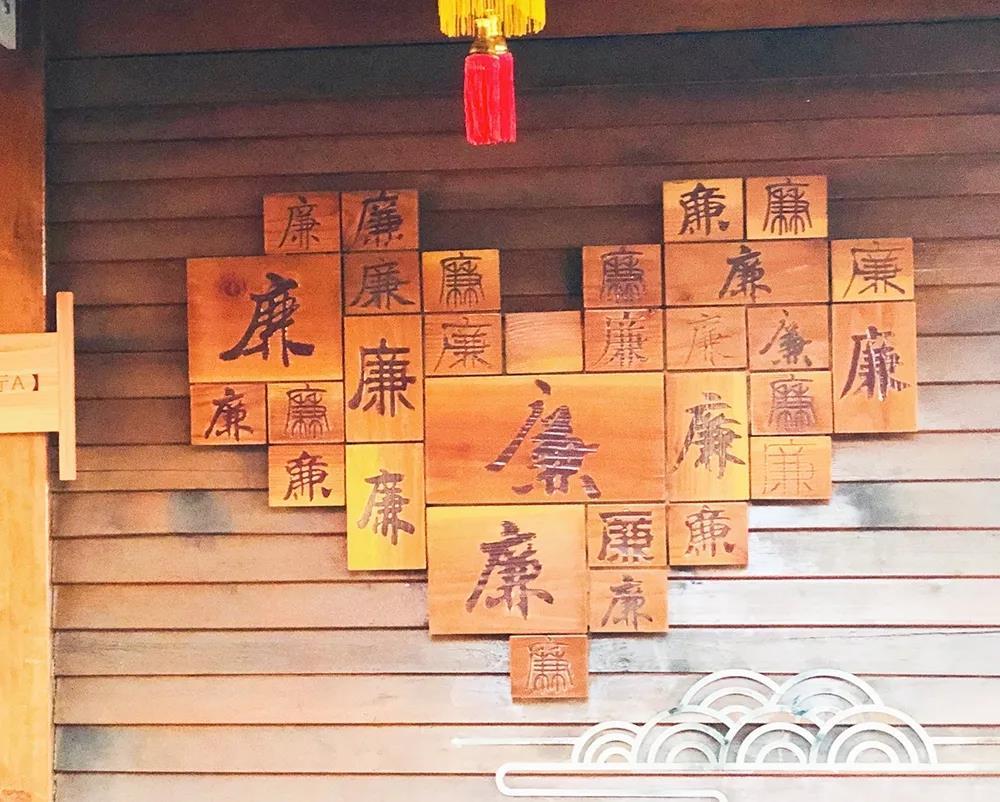 廉 廉 廉 廉
廉 廉 廉 廉 廉 廉
廉 廉 廉 廉 廉
廉 廉 廉 廉 廉 廉
廉 廉 廉
廉 廉 廉
廉
廉
厅A】